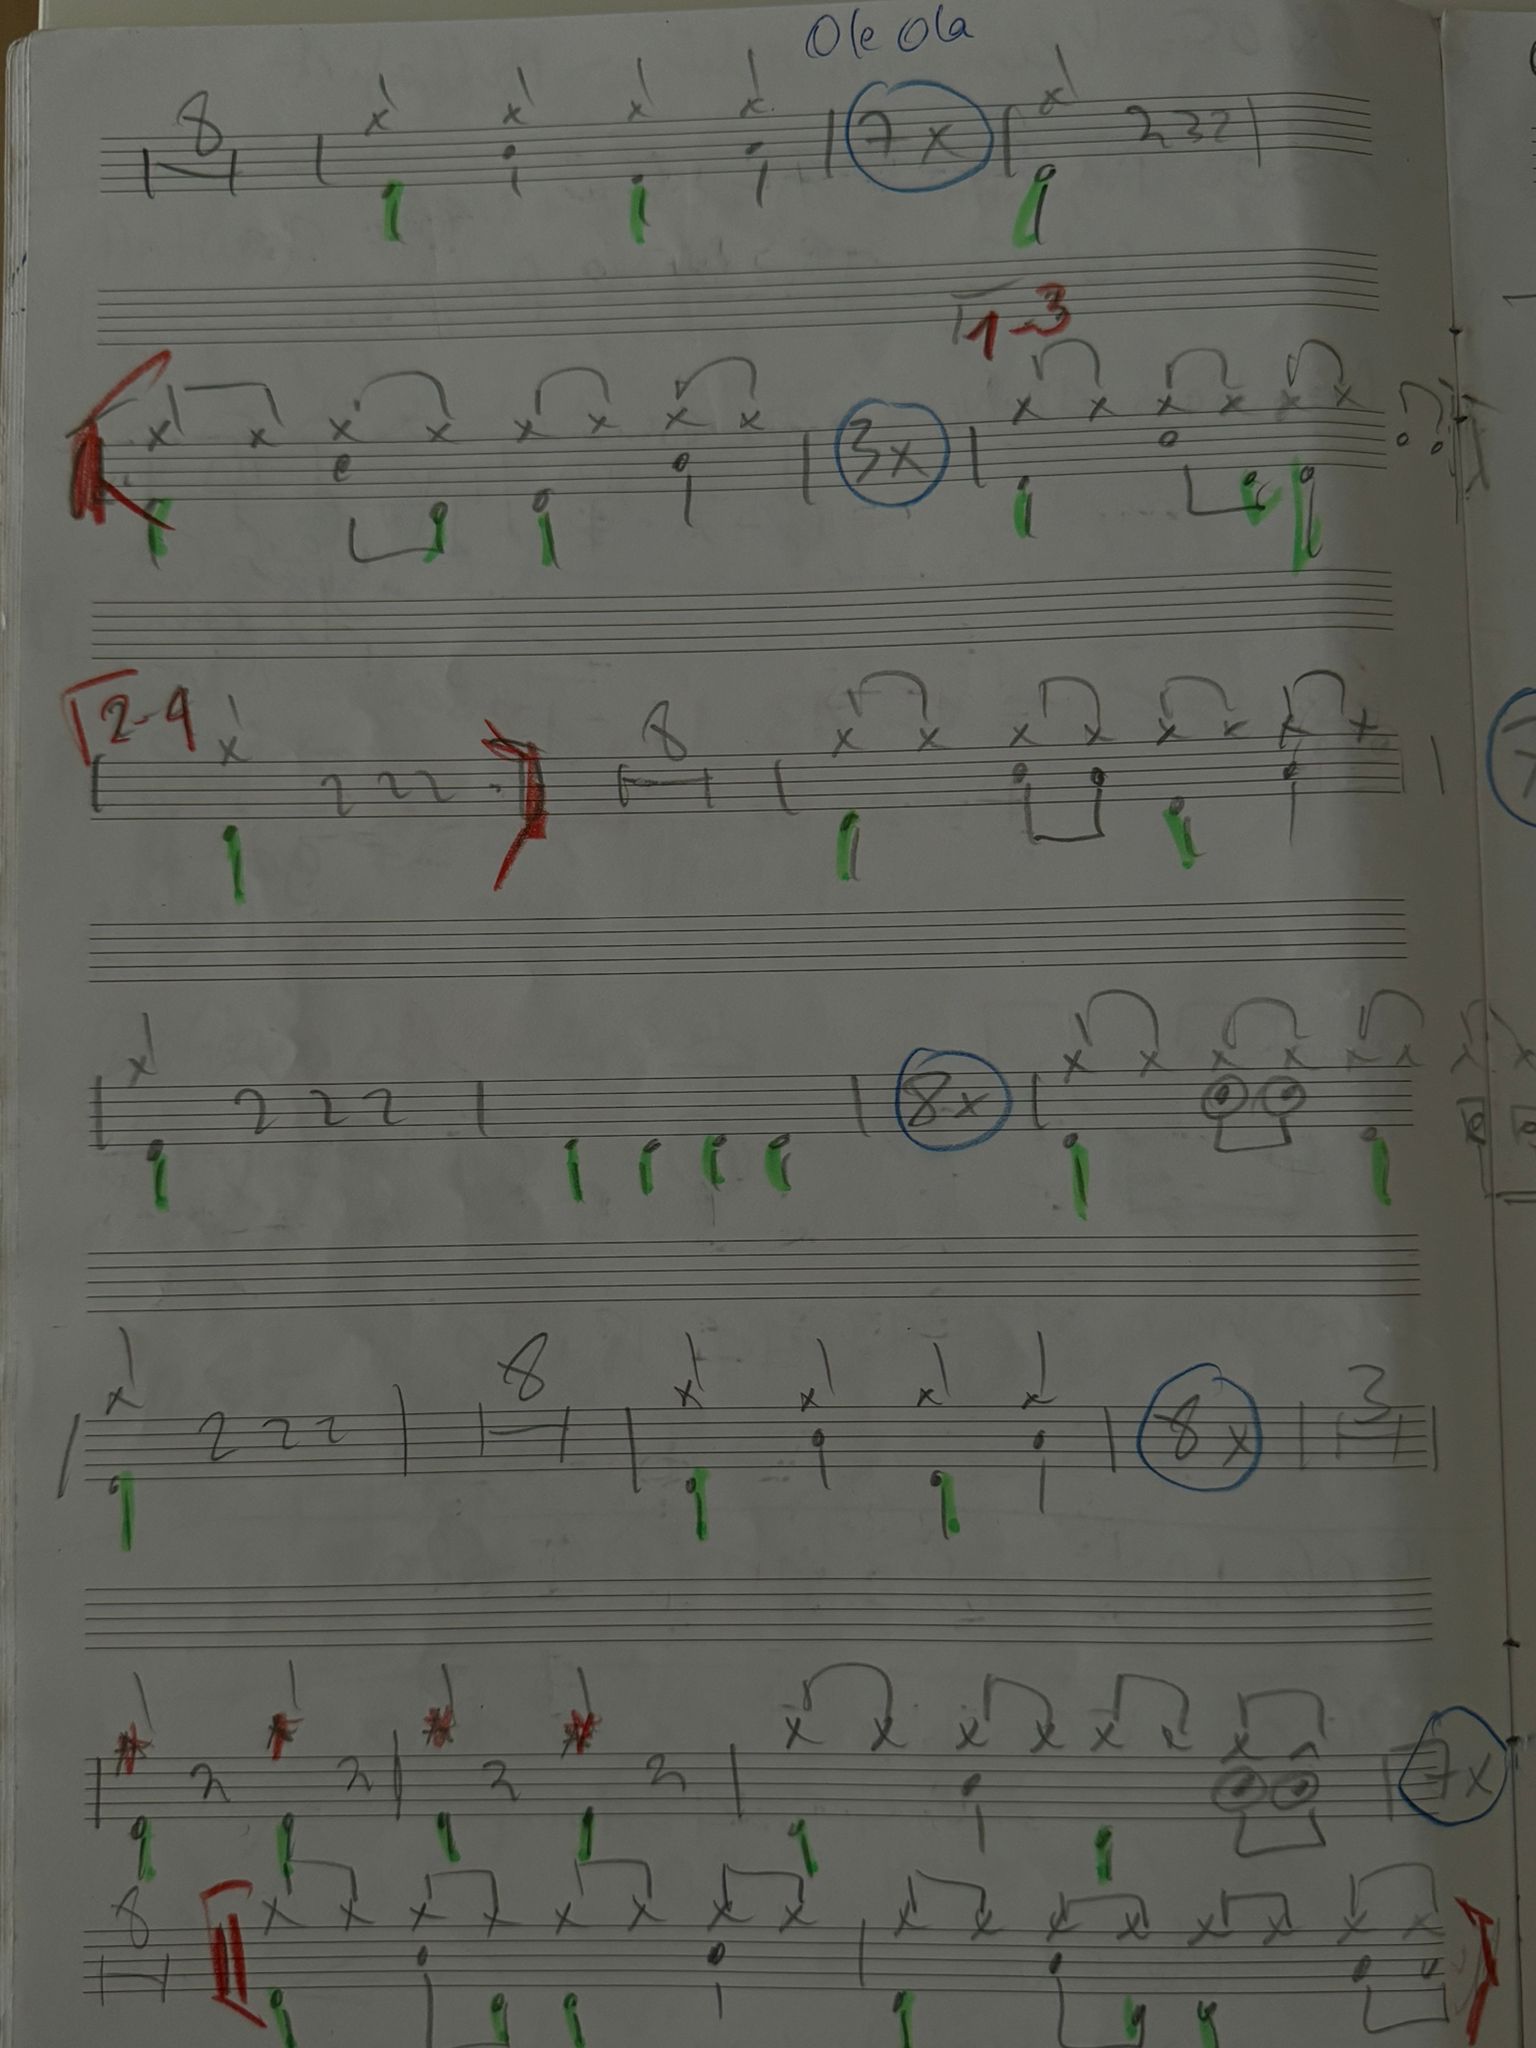 Ole Ola
8 7x
1-3
3x
2-4 8
8x
8 8x 3
7x
8